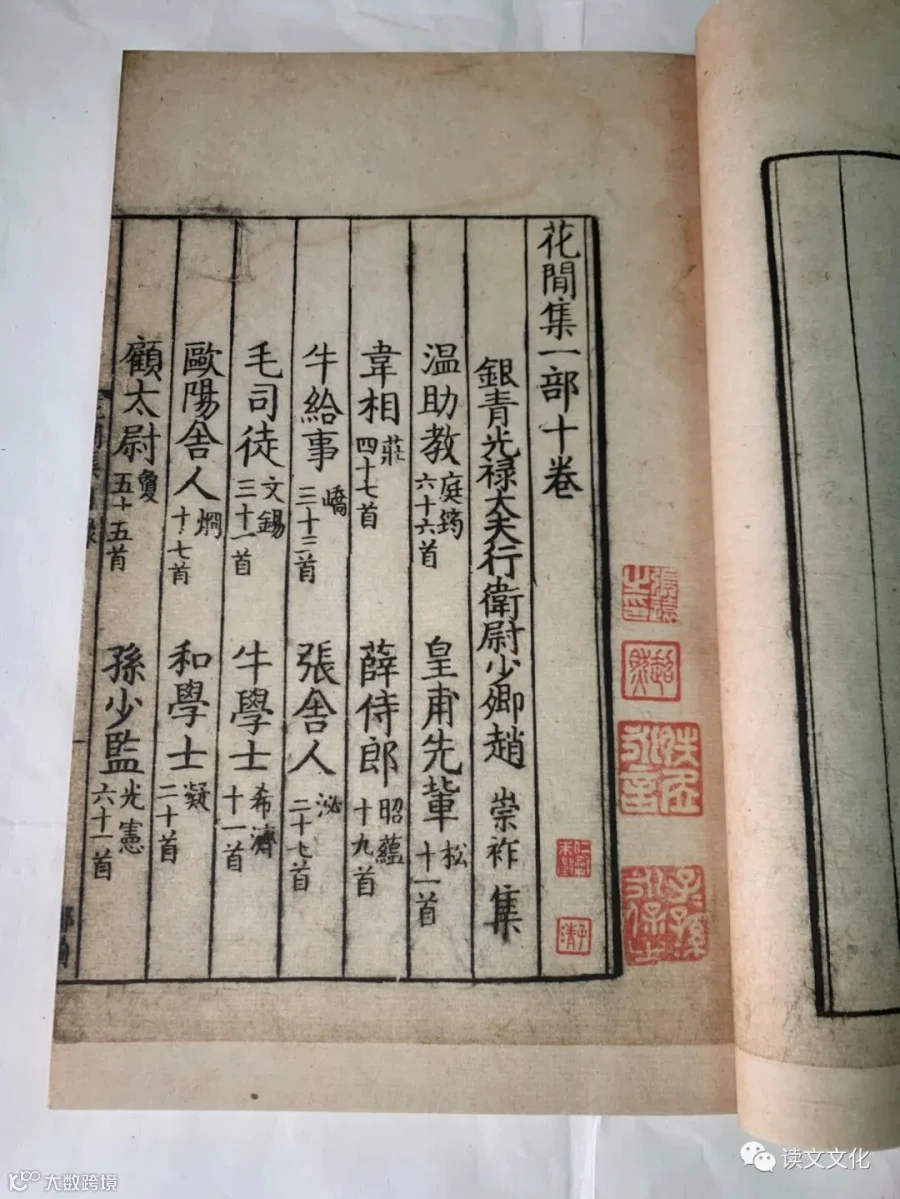 花間集一部十卷
銀青光禄大夫行衛尉少卿趙 崇祚 集
温助教庭筠六十六首 皇甫先輩松十一首
韋相莊四十七首 薛侍郎昭蘊十九首
牛給事嶠三十三首 張舍人泌二十七首
毛司徒文錫三十一首 牛學士希濟十一首
歐陽舍人烱十七首 和學士凝二十首
顧太尉敻五十五首 孫少監光憲六十一首
读文文化
大数跨境